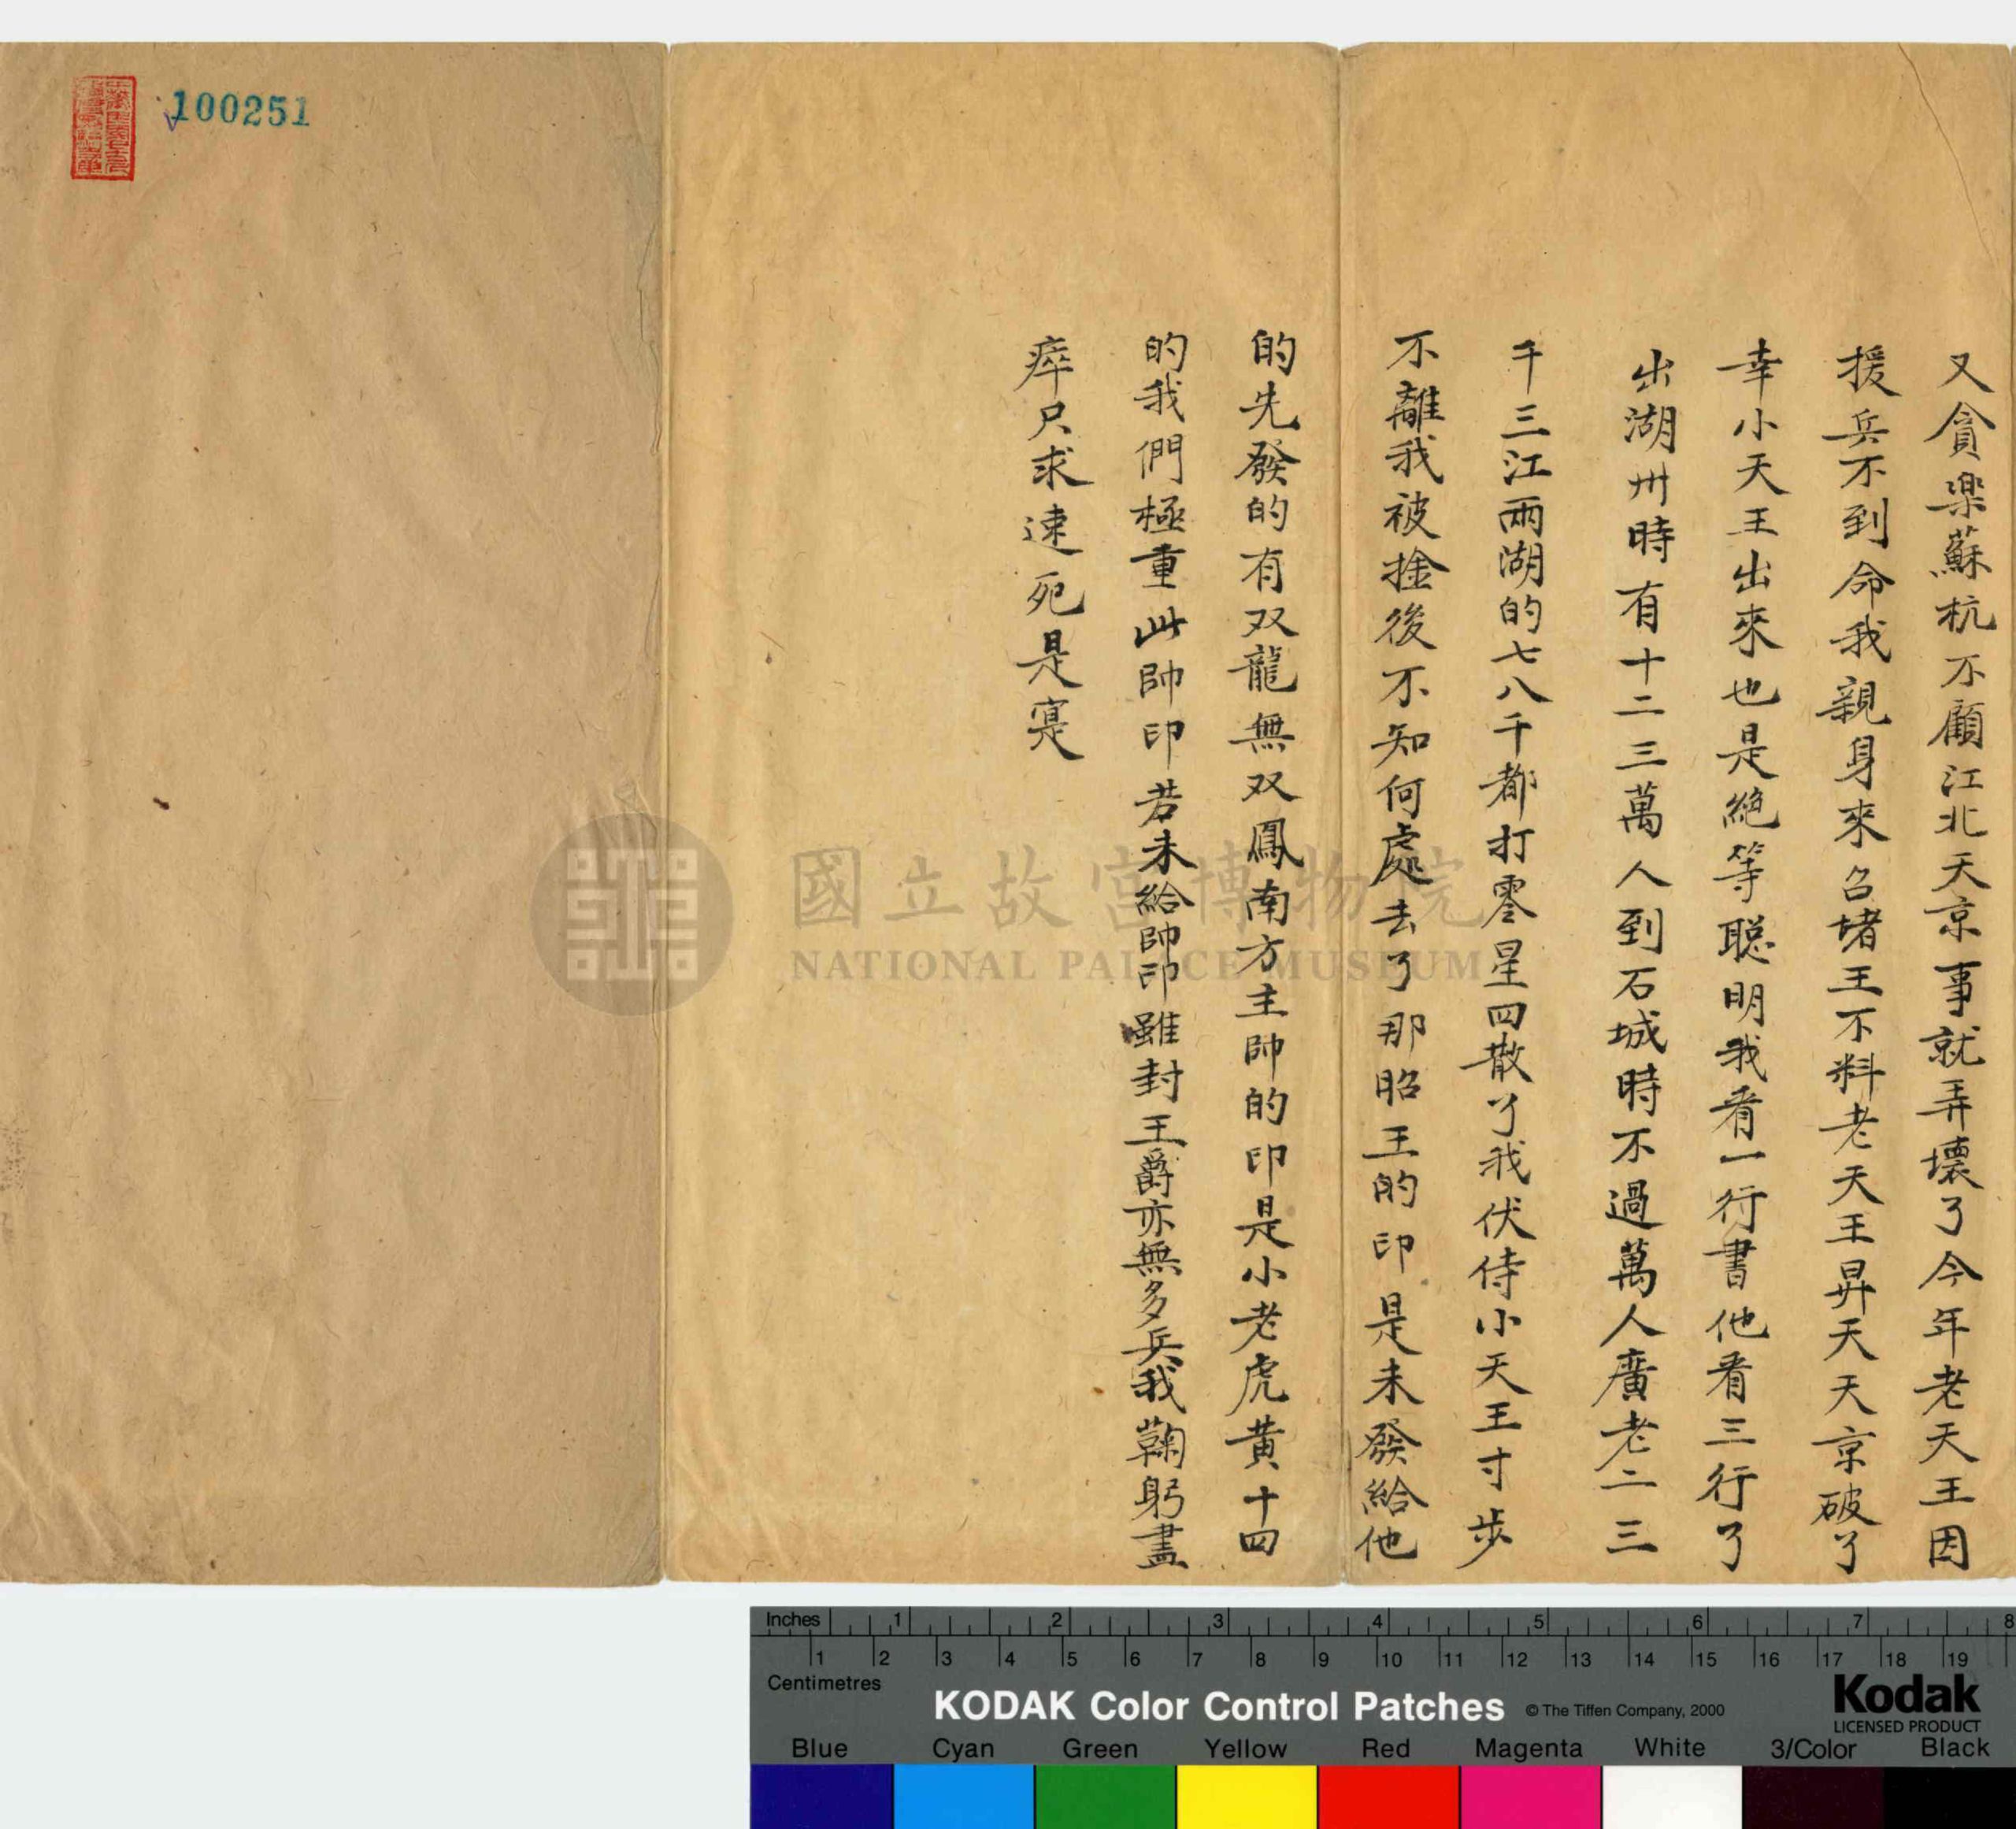 又貪樂蘇杭不顧江北天京事就弄壞了今年老天王因
援兵不到命我親身來召堵王不料老天王昇天天京破了
幸小天王出來也是絕等聰明我看一行書他看三行了
出湖州時有十二三萬人到石城時不過萬人廣老二三
千三江兩湖的七八千都打零星四散了我伏侍小天王寸步
不離我被捦後不知何處去了那昭王的印是未發給他
的先發的有双龍無双鳳南方主帥的印是小老虎黄十四
的我們極重此帥印若未給帥印雖封王爵亦無多兵我鞠躬盡
瘁只求速死是寔
100251
國立故宮博物院
NATIONAL PALACE MUSEUM
Inches 1 2 3 4 5 6 7 8
1 2 3 4 5 6 7 8 9 10 11 12 13 14 15 16 17 18 19
Centimetres
KODAK Color Control Patches © The Tiffen Company, 2000
Kodak
LICENSED PRODUCT
Blue Cyan Green Yellow Red Magenta White 3/Color Black